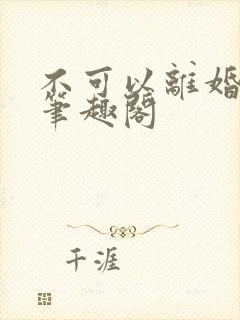 不可以離婚
筆趣閣
千涯